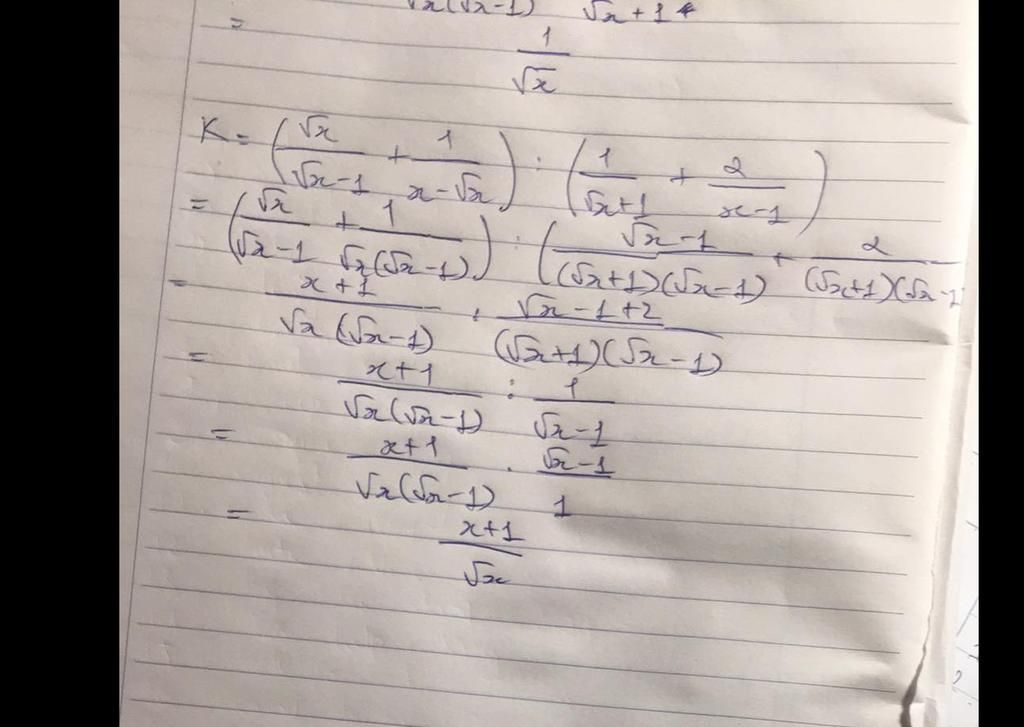 √x(√x-1) √x+1
=
1/√x
K = (√x/(√x-1) + 1/(x-√x)) : (1/(√x+1) + 2/(x-1))
= (√x/(√x-1) + 1/(√x(√x-1))) : ((√x-1)/((√x+1)(√x-1)) + 2/((√x+1)(√x-1
= (x+1)/(√x(√x-1)) : (√x-1+2)/((√x+1)(√x-1))
= (x+1)/(√x(√x-1)) : 1/(√x-1)
= (x+1)/(√x(√x-1)) . (√x-1)/1
= (x+1)/√x